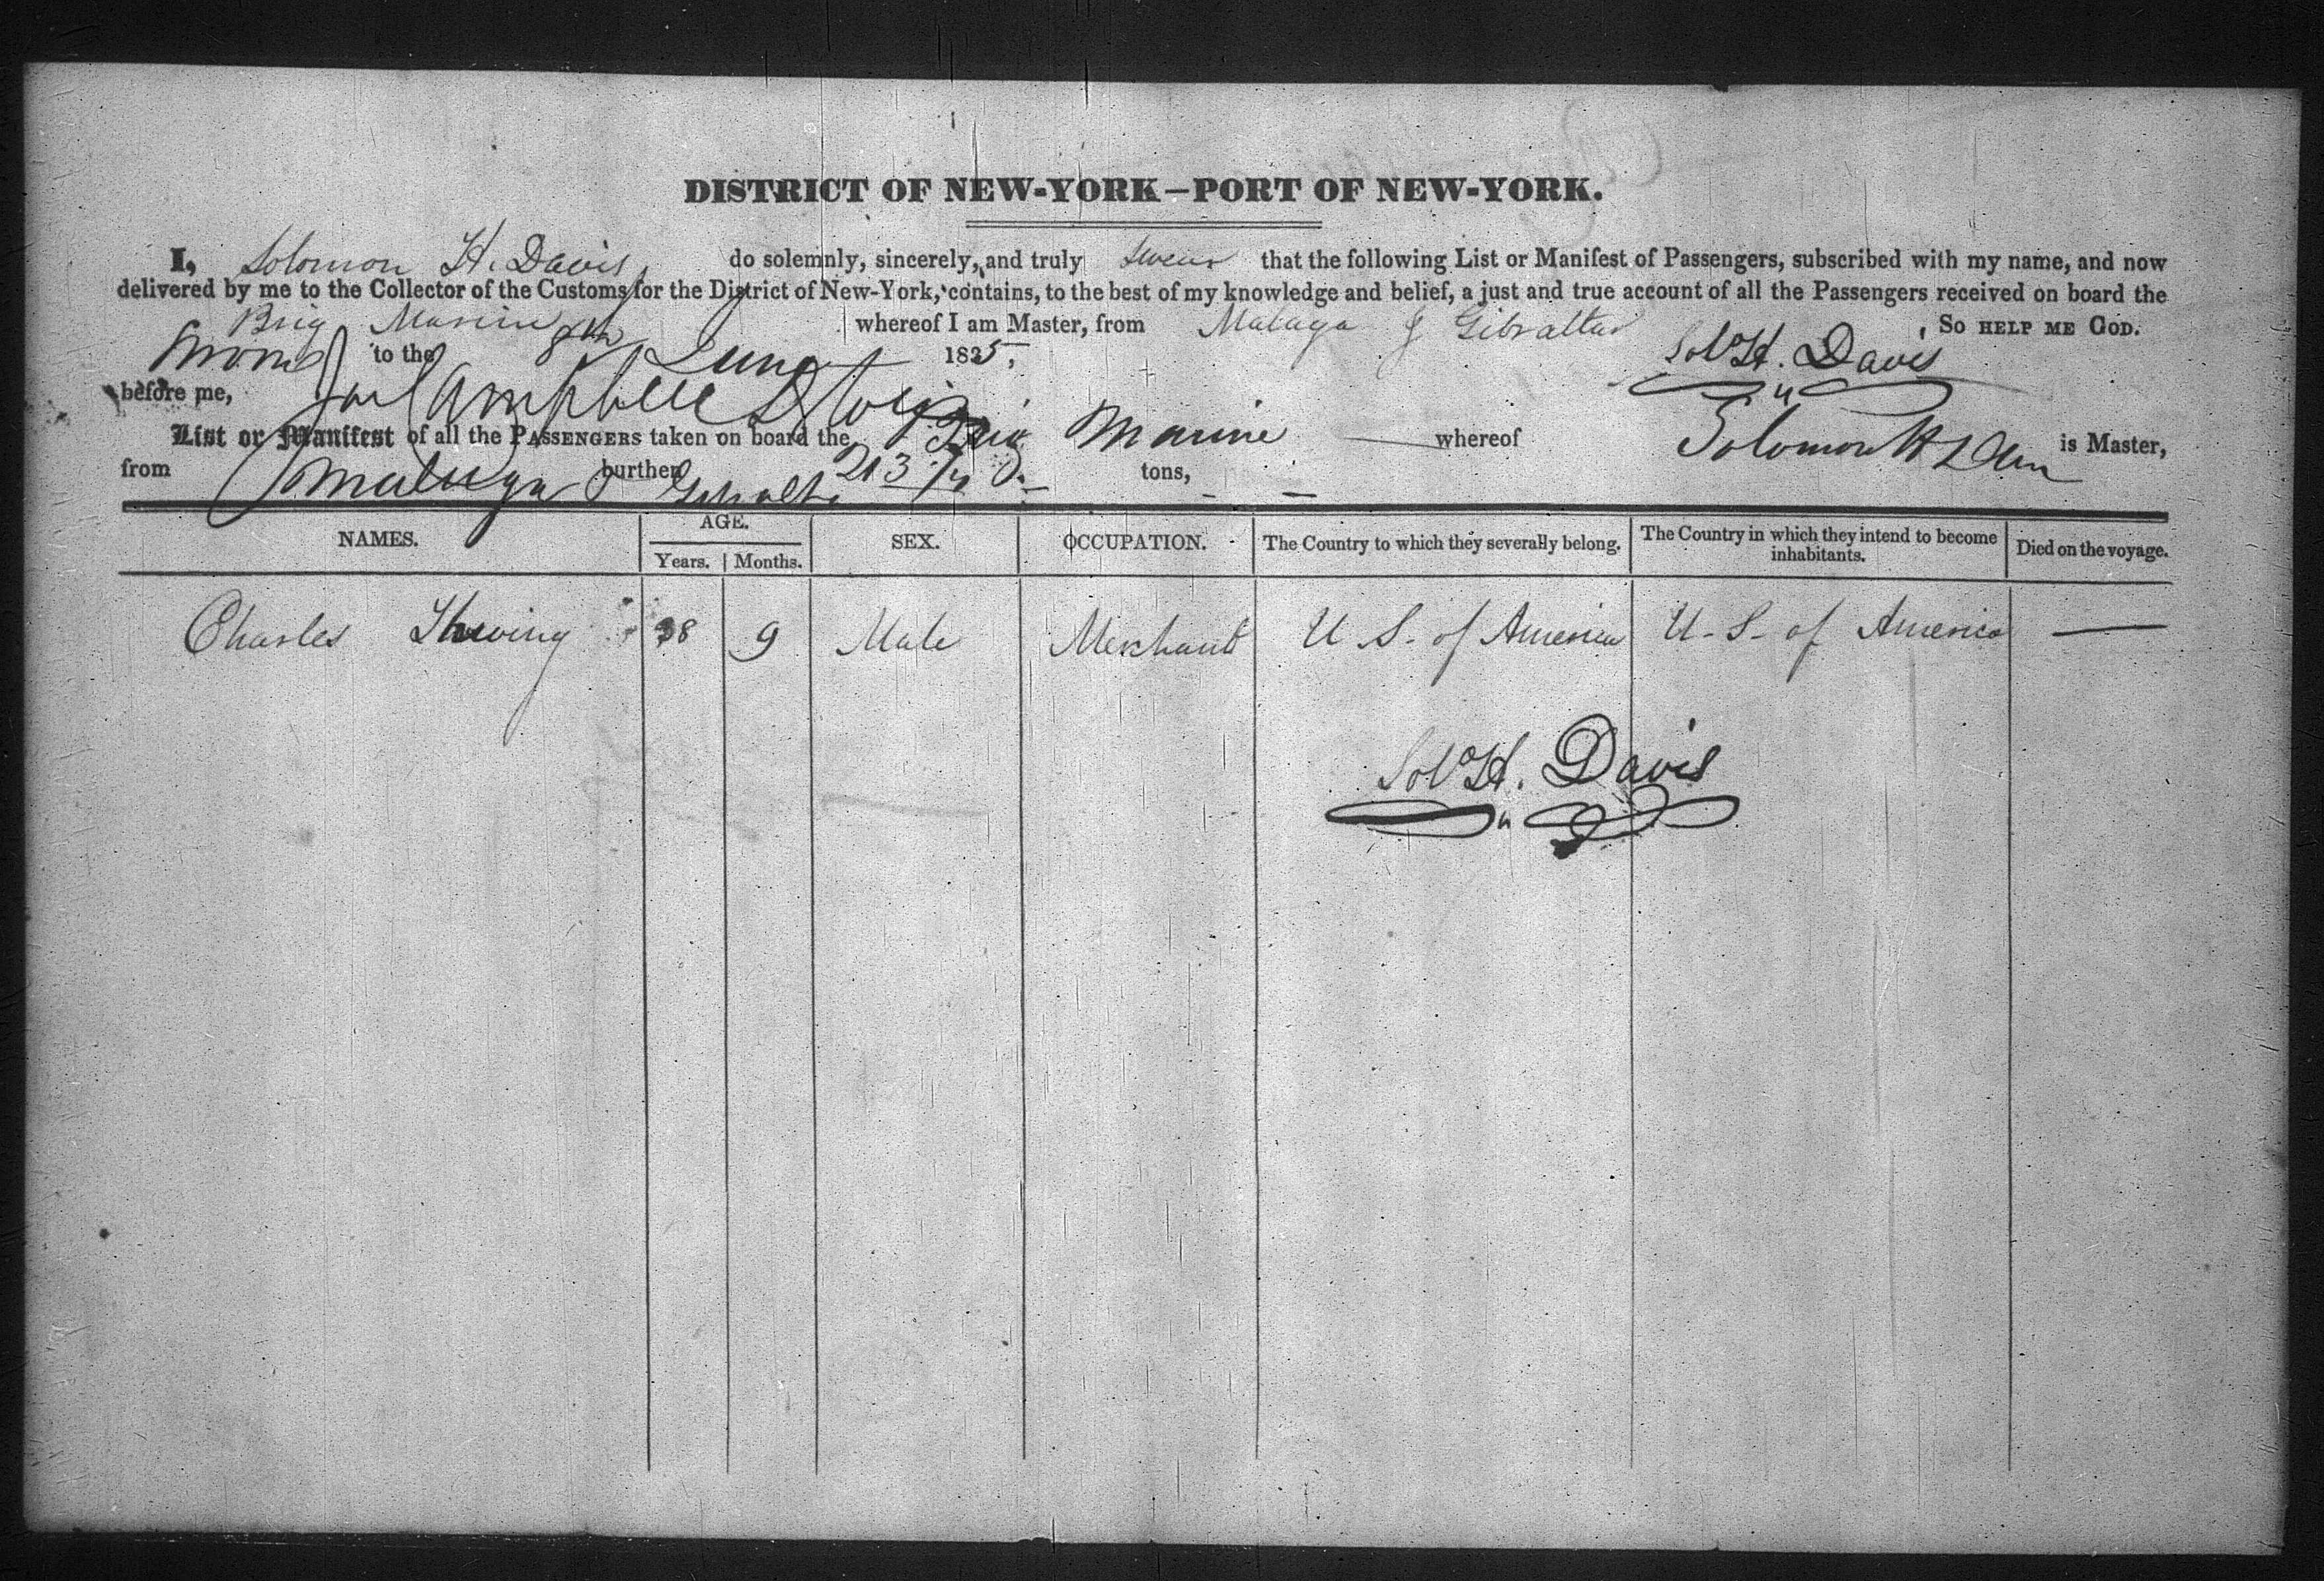 DISTRICT OF NEW-YORK—PORT OF NEW-YORK.
I, Solomon H. Davis, do solemnly, sincerely, and truly swear that the following List or Manifest of Passengers, subscribed with my name, and now
delivered by me to the Collector of the Customs for the District of New-York, contains, to the best of my knowledge and belief, a just and true account of all the Passengers received on board the
Brig Marine whereof I am Master, from Malaga & Gibraltar, So HELP ME GOD.
Sworn to the 8th June 1835, Solo H. Davis
before me,
List or Manifest of all the PASSENGERS taken on board the Brig Marine whereof Solomon H Davis is Master,
from Malaga & burthen 213 tons,
NAMES. AGE. SEX. OCCUPATION. The Country to which they severally belong. The Country in which they intend to become inhabitants. Died on the voyage.
Years. Months.
Charles Thwing 38 9 Male Merchant U S. of America U. S. of America —
Solo H. Davis